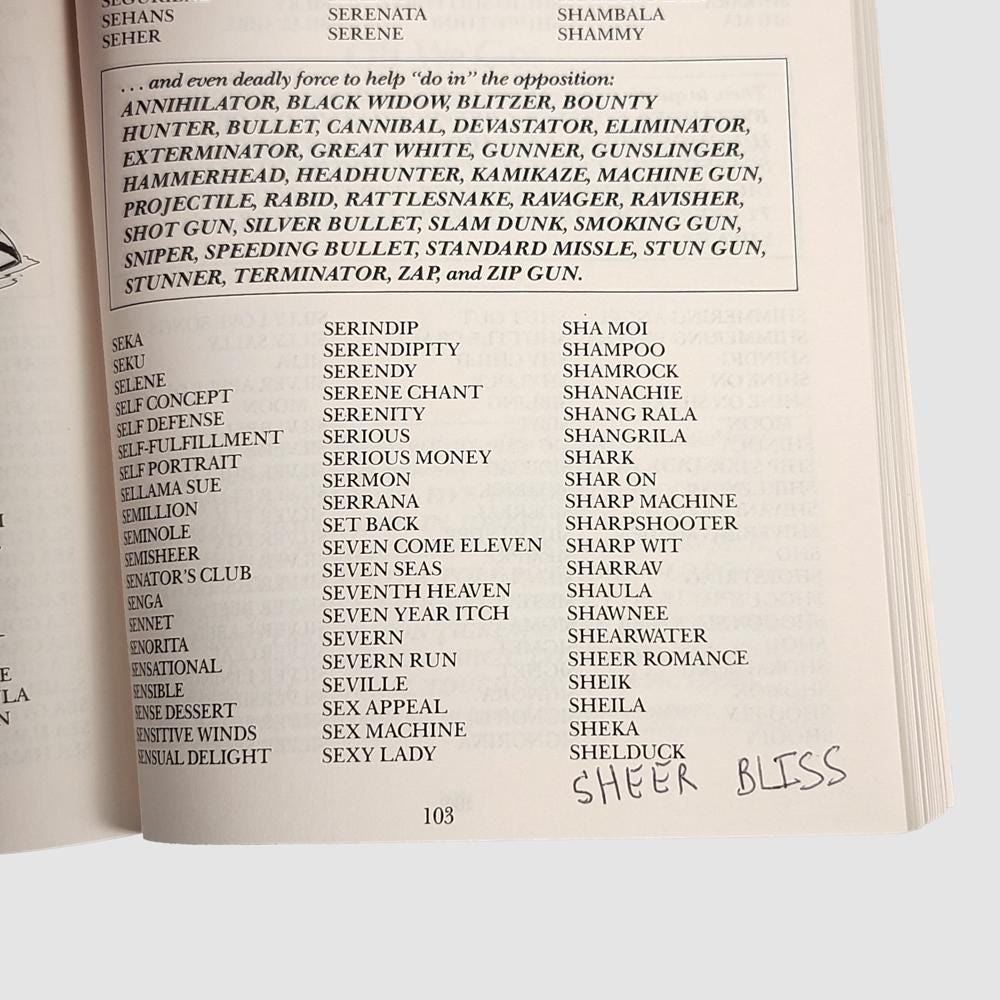 SEHANS
SEHER
SERENATA
SERENE
SHAMBALA
SHAMMY
. . . and even deadly force to help “do in” the opposition:
ANNIHILATOR, BLACK WIDOW, BLITZER, BOUNTY
HUNTER, BULLET, CANNIBAL, DEVASTATOR, ELIMINATOR,
EXTERMINATOR, GREAT WHITE, GUNNER, GUNSLINGER,
HAMMERHEAD, HEADHUNTER, KAMIKAZE, MACHINE GUN,
PROJECTILE, RABID, RATTLESNAKE, RAVAGER, RAVISHER,
SHOT GUN, SILVER BULLET, SLAM DUNK, SMOKING GUN,
SNIPER, SPEEDING BULLET, STANDARD MISSLE, STUN GUN,
STUNNER, TERMINATOR, ZAP, and ZIP GUN.
SEKA
SEKU
SELENE
SELF CONCEPT
SELF DEFENSE
SELF-FULFILLMENT
SELF PORTRAIT
SELLAMA SUE
SEMILLION
SEMINOLE
SEMISHEER
SENATOR’S CLUB
SENGA
SENNET
SENORITA
SENSATIONAL
SENSIBLE
SENSE DESSERT
SENSITIVE WINDS
SENSUAL DELIGHT
SERINDIP
SERENDIPITY
SERENDY
SERENE CHANT
SERENITY
SERIOUS
SERIOUS MONEY
SERMON
SERRANA
SET BACK
SEVEN COME ELEVEN
SEVEN SEAS
SEVENTH HEAVEN
SEVEN YEAR ITCH
SEVERN
SEVERN RUN
SEVILLE
SEX APPEAL
SEX MACHINE
SEXY LADY
SHA MOI
SHAMPOO
SHAMROCK
SHANACHIE
SHANG RALA
SHANGRILA
SHARK
SHAR ON
SHARP MACHINE
SHARPSHOOTER
SHARP WIT
SHARRAV
SHAULA
SHAWNEE
SHEARWATER
SHEER ROMANCE
SHEIK
SHEILA
SHEKA
SHELDUCK
SHEER BLISS
103